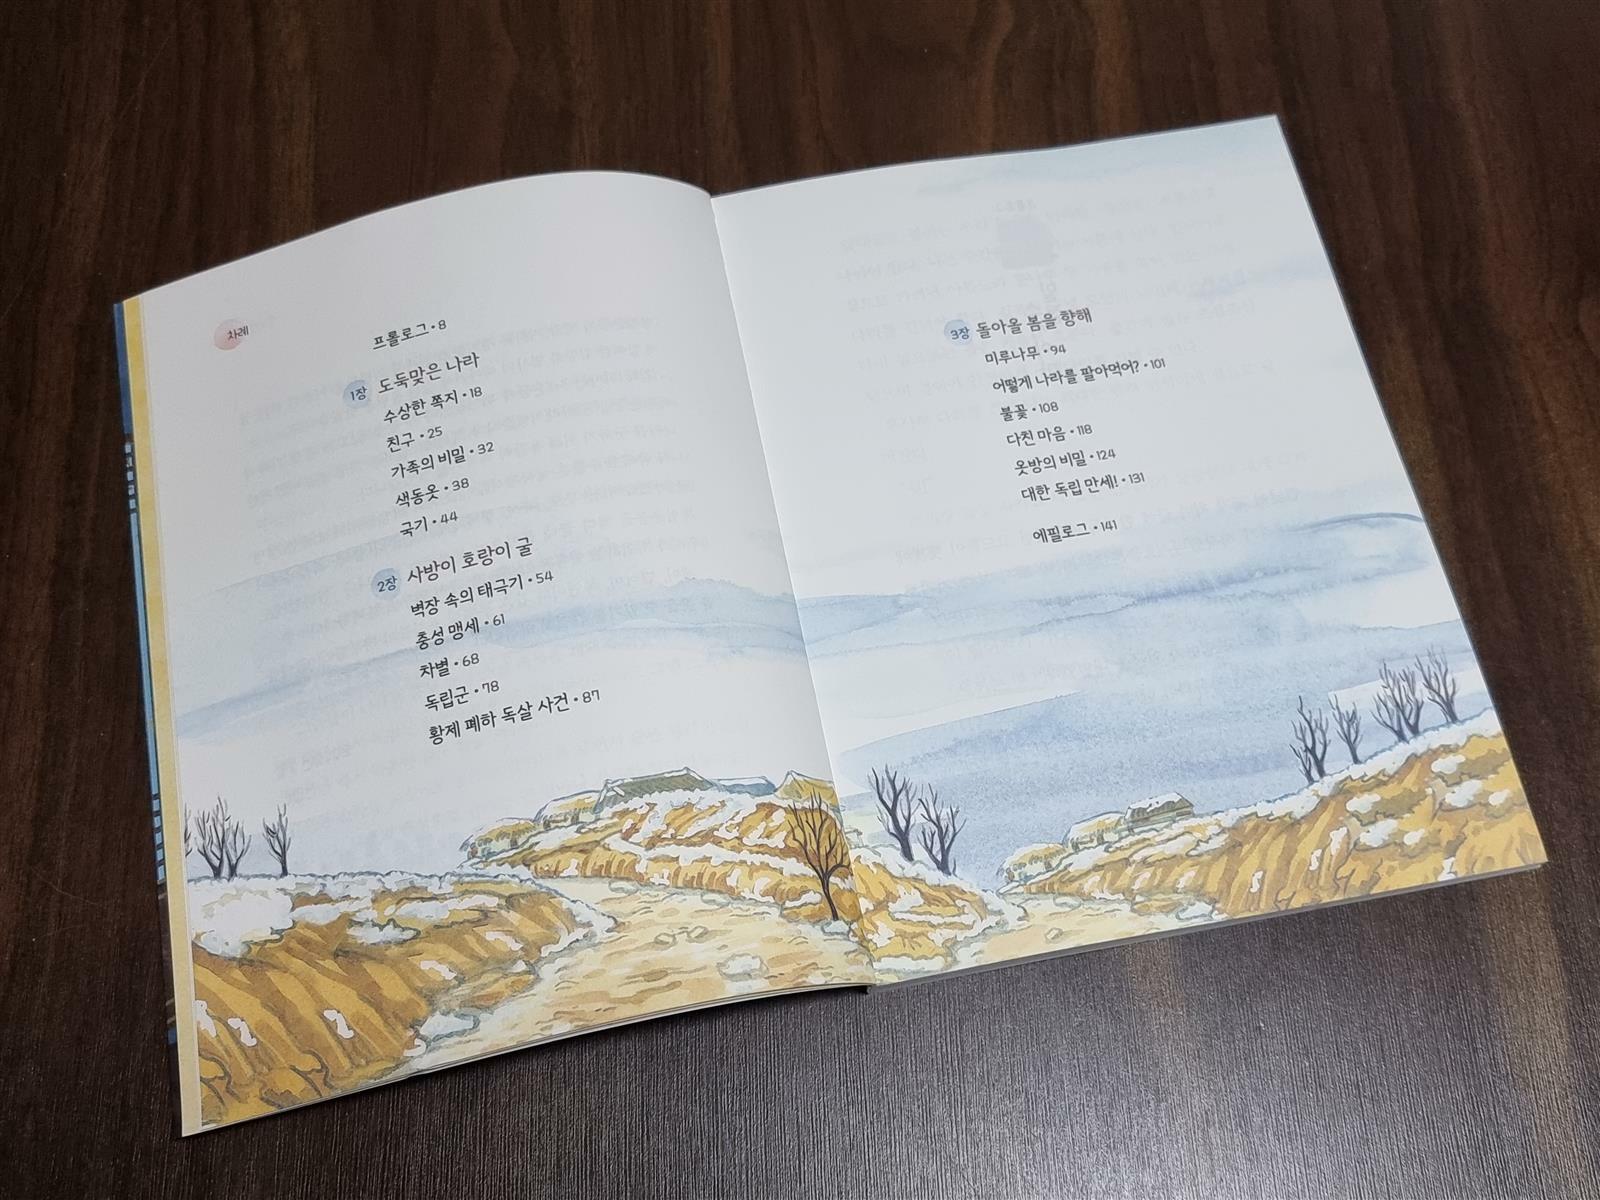 차례
프롤로그 • 8
1장 도둑맞은 나라
수상한 쪽지 • 18
친구 • 25
가족의 비밀 • 32
색동옷 • 38
국기 • 44
2장 사방이 호랑이 굴
벽장 속의 태극기 • 54
충성 맹세 • 61
차별 • 68
독립군 • 78
황제 폐하 독살 사건 • 87
3장 돌아올 봄을 향해
미루나무 • 94
어떻게 나라를 팔아먹어? • 101
불꽃 • 108
다친 마음 • 118
옷방의 비밀 • 124
대한 독립 만세! • 131
에필로그 • 141